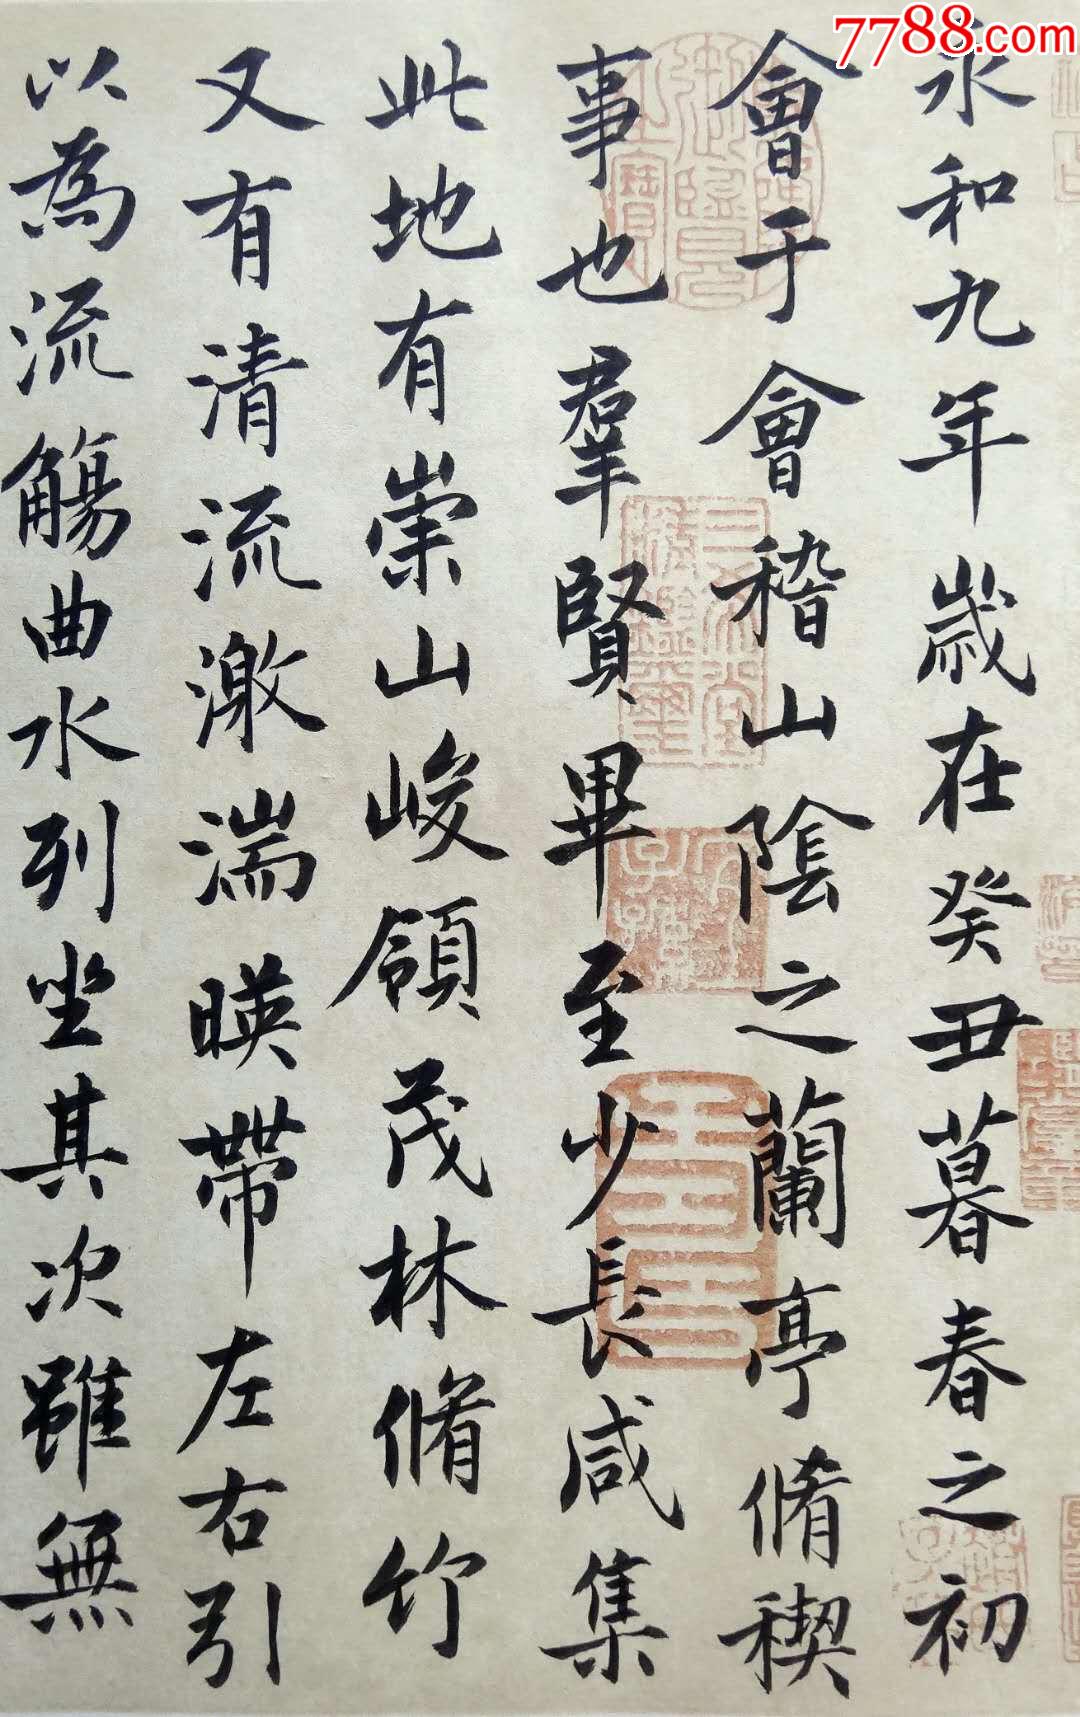 7788.com
永和九年歲在癸丑暮春之初
會于會稽山陰之蘭亭脩稧
事也羣賢畢至少長咸集
此地有崇山峻領茂林脩竹
又有清流激湍暎帶左右引
以為流觴曲水列坐其次雖無